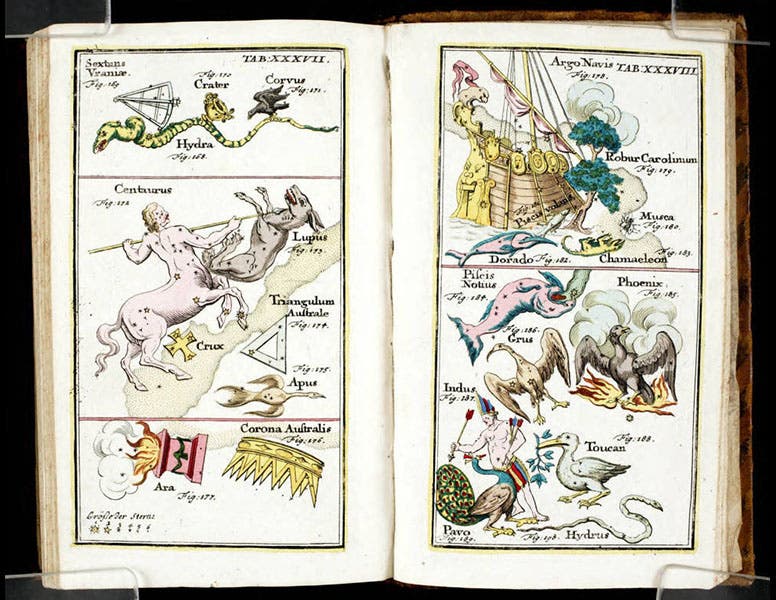 TAB:XXXVII.
Sextans
Vraniæ.
Fig:169.
Fig:170
Crater
Corvus
Fig:171.
Hydra
Fig:168.
Centaurus
Fig:172
Lupus
Fig:173.
Triangulum
Australe
Fig:174.
Crux
Fig:175.
Apus
Corona Australis
Fig:176.
Ara
Fig:177.
Größe der Stern:
1 2 3 4 5 6
Argo Navis
TAB:XXXVIII
Fig:178.
Robur Carolinum
Fig:179.
Piscis volans
Musca
Fig:180.
Dorado
Fig:182.
Chamaeleon
Fig:183.
Piscis
Notius
Fig:184.
Phoenix
Fig:185.
Fig:186.
Grus
Indus
Fig:187.
Fig:188.
Toucan
Pavo
Fig:189.
Hydrus